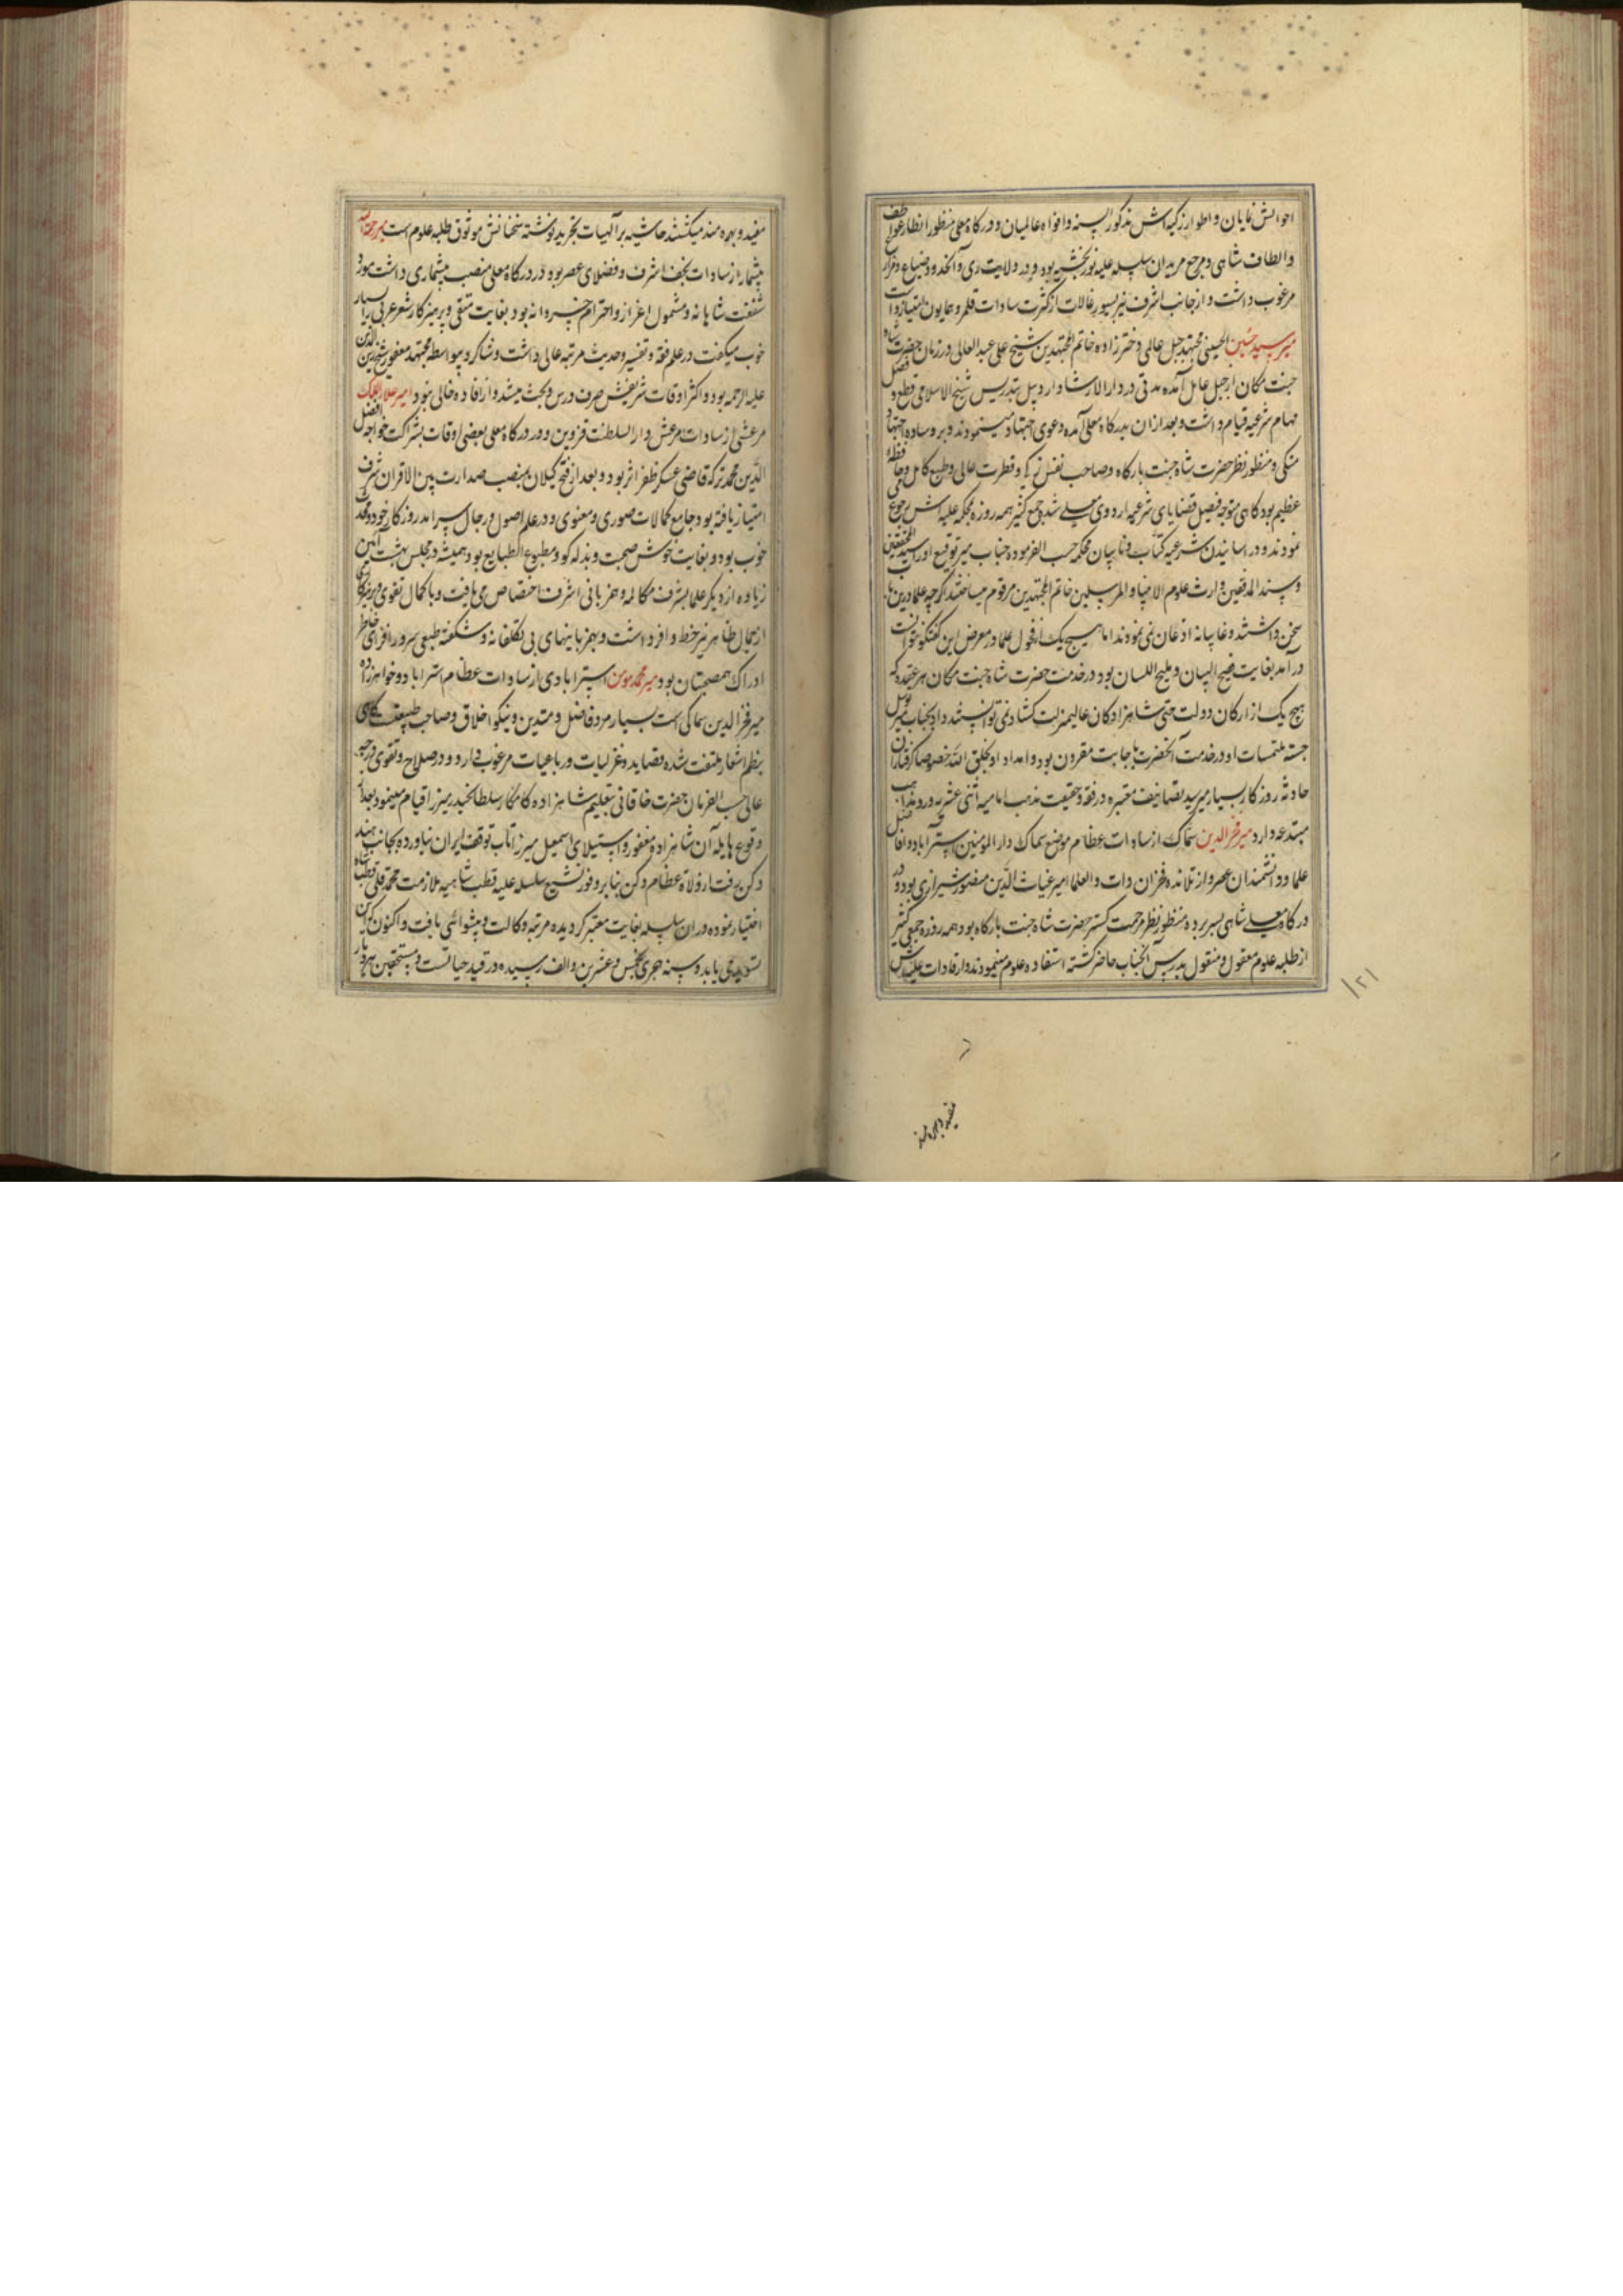 احوالش نمایان و اطوار زکیه‌اش مذکور السنه و افواه عالمیان و در درکاه معلی منظور انظار عواطف
و الطاف شاهی و مرجع مریدان سلسله علیه نوربخشیه بود و در ولایت ری و آنحدود ضیاع و مزارع
مرغوب داشت و از جانب اشرف نیز بسیورغالات از کثرت سادات قلمرو همایون امتیاز داشت
میر سید حسین الحسینی مجتهد جبل عاملی دختر زاده خاتم المجتهدین شیخ علی عبد العالی در زمان حضرت شاه
جنت مکان از جبل عامل آمده مدتی در دار الارشاد اردبیل بتدریس و شیخ الاسلامی و قطع و فصل
مهام شرعیه قیام داشت و بعد از ان بدرکاه معلی آمده دعوی اجتهاد مینمودند و بر وساده اجتهاد
متکی و منظور نظر حضرت شاه جنت بارکاه و صاحب نفس زکی و فطرت عالی و طبع کامل و حافظه
عظیم بود کاهی متوجه فیصل قضایای شرعیه اردوی معلی شده جمع کثیر همه روزه بمحکمه علیه‌اش رجوع می
نمودند و در اسانیدن شرعیه کتاب و نایبان محکمه حسب الفرموده جناب میر توقیع او را سید المحققین
و سند المدققین وارث علوم الانبیا و المرسلین خاتم المجتهدین مرقوم میساختند اکرچه علما درین باب
سخن داشتند و غایبانه اذعان نمی نمودند اما هیچ یک از فحول علما در معرض این کفتکو نتوانست
درآمد بغایت فصیح البیان و ملیح اللسان بود در خدمت حضرت شاه جنت مکان هر عقیده که
هیچ یک از ارکان دولت حتی شاهزادکان عالیمنزلت کشاد نمی توانستند داد بجناب میر توسل
جسته ملتمسات او در خدمت آنحضرت باجابت مقرون بود و امداد او بخلق الله خصوصا کرفتاران
حادثه روزکار بسیار میرسید تصانیف معتبره در فقه و حقیقت مذهب امامیه اثنی عشریه و رد مذاهب
مبتدعه دارد میر فخر الدین سماکی از سادات عظام موضع سماک دار المومنین استرآباد و افاضل
علما و دانشمندان عصر و از تلامذه فخر ان دات و العلما امیر غیاث الدین منصور شیرازی بود و در
درکاه معلی شاهی بسر برده منظور نظر مرحمت کستر حضرت شاه جنت بارکاه بود همه روزه جمعی کثیر
از طلبه علوم معقول و منقول بدرس آنجناب حاضر کشته استفاده علوم مینمودند و از افادات علیه‌اش
۱۲۱
مفید و بهره مند
مفید و بهره مند میکشتند حاشیه بر آلهیات تجرید نوشته سخنانش موثوق طلبه علوم است میر رحمة الله
پیشنماز از سادات نجف اشرف و فضلای عصر بود و در درکاه معلی منصب پیشنمازی داشت مورد
شفقت شاهانه و مشمول اعزاز و احترام خسروانه بود بغایت متقی و پرهیزکار شعر عربی را بسیار
خوب میکفت در علم فقه و تفسیر و حدیث مرتبه عالی داشت و شاکرد بواسطه مجتهد مغفور شیخ زین الدین
علیه الرحمه بود و اکثر اوقات شریفش صرف درس و بحث میشد و از افاده خالی نبود امیر علاء الملک
مرعشی از سادات مرعش دار السلطنت قزوین و در درکاه معلی بعضی اوقات بشراکت خواجه افضل
الدین محمد ترکه قاضی عسکر ظفر اثر بود و بعد از فتح کیلان بمنصب صدارت بین الاقران شرف
امتیاز یافته بود جامع کمالات صوری و معنوی و در علم اصول و رجال سرآمد روزکار خود و محدث
خوب بود و بغایت خوش صحبت و بذله کو و مطبوع الطبایع بود همیشه در مجلس بهشت آئین
زیاده از دیکر علما بشرف مکالمه و همزبانی اشرف اختصاص می یافت و با کمال تقوی و پرهیزکاری
از جمال ظاهر نیز خط وافر داشت و بهمزبانیهای بی تکلفانه و شکفته طبعی سرور افزای خاطر
ادراک همصحبتان بود میر محمد مومن استرابادی از سادات عظام استراباد و خواهرزاده
میر فخر الدین سماکی است بسیار مرد فاضل و متدین و نیکو اخلاق و صاحب طبیعت کاهی
بنظم اشعار ملتفت شده قصاید و غزلیات و رباعیات مرغوب دارد و در صلاح و تقوی درجه
عالی حسب الفرمان حضرت خاقانی بتعلیم شاهزاده کامکار سلطان حیدر میرزا قیام مینمود بعد از
وقوع هایله آن شاهزاده مغفور و استیلای اسمعیل میرزا تاب توقف ایران نیاورده بجانب هند
دکن رفت از ولاة عظام دکن بنابر وفور تشیع سلسله علیه قطب شاهیه ملازمت محمد قلی قطبشاه
اختیار نموده در ان سلسله بغایت معتبر کردیده مرتبه وکالت و پیشوائی یافت و اکنون که این
تسوید می یابد و سنه هجری بخمس و عشرین و الف رسیده در قید حیاتست و مستحقین هر دیار